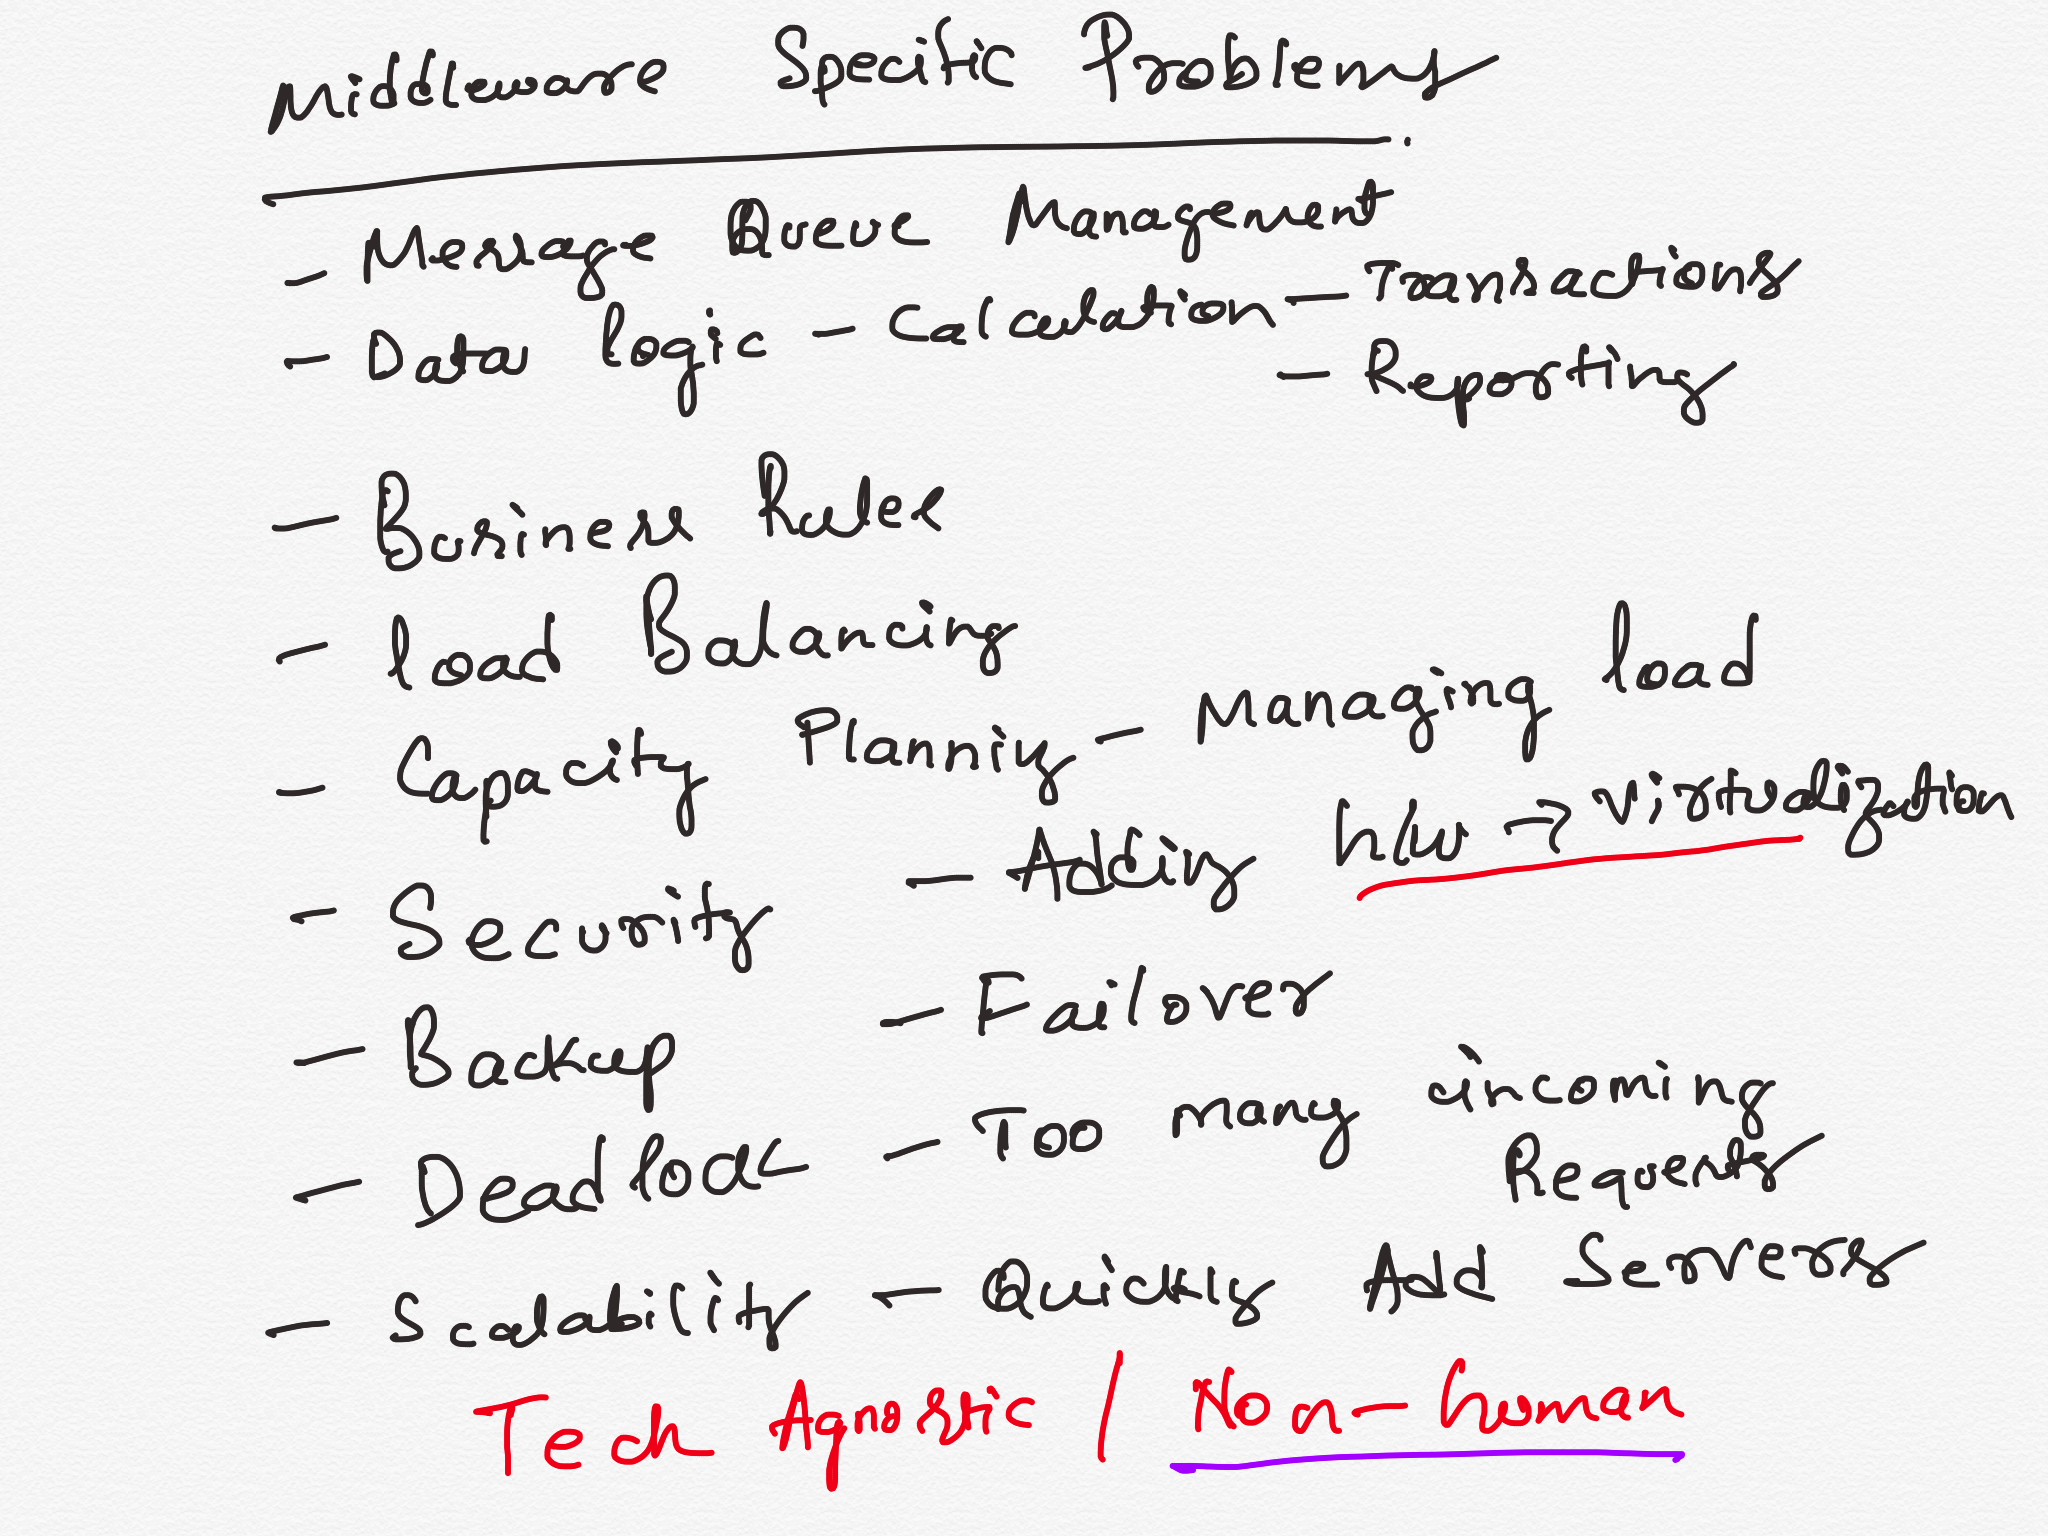 Middleware Specific Problems.
- Message Queue Management
- Data logic - Calculation - Transactions
- Reporting
- Business Rules
- load Balancing
- Capacity Planning - Managing load
- Adding h/w → virtualization
- Security
- Failover
- Backup
- Deadlock - Too many incoming
Requests
- Scalability - Quickly Add Servers
Tech Agnostic / Non-human